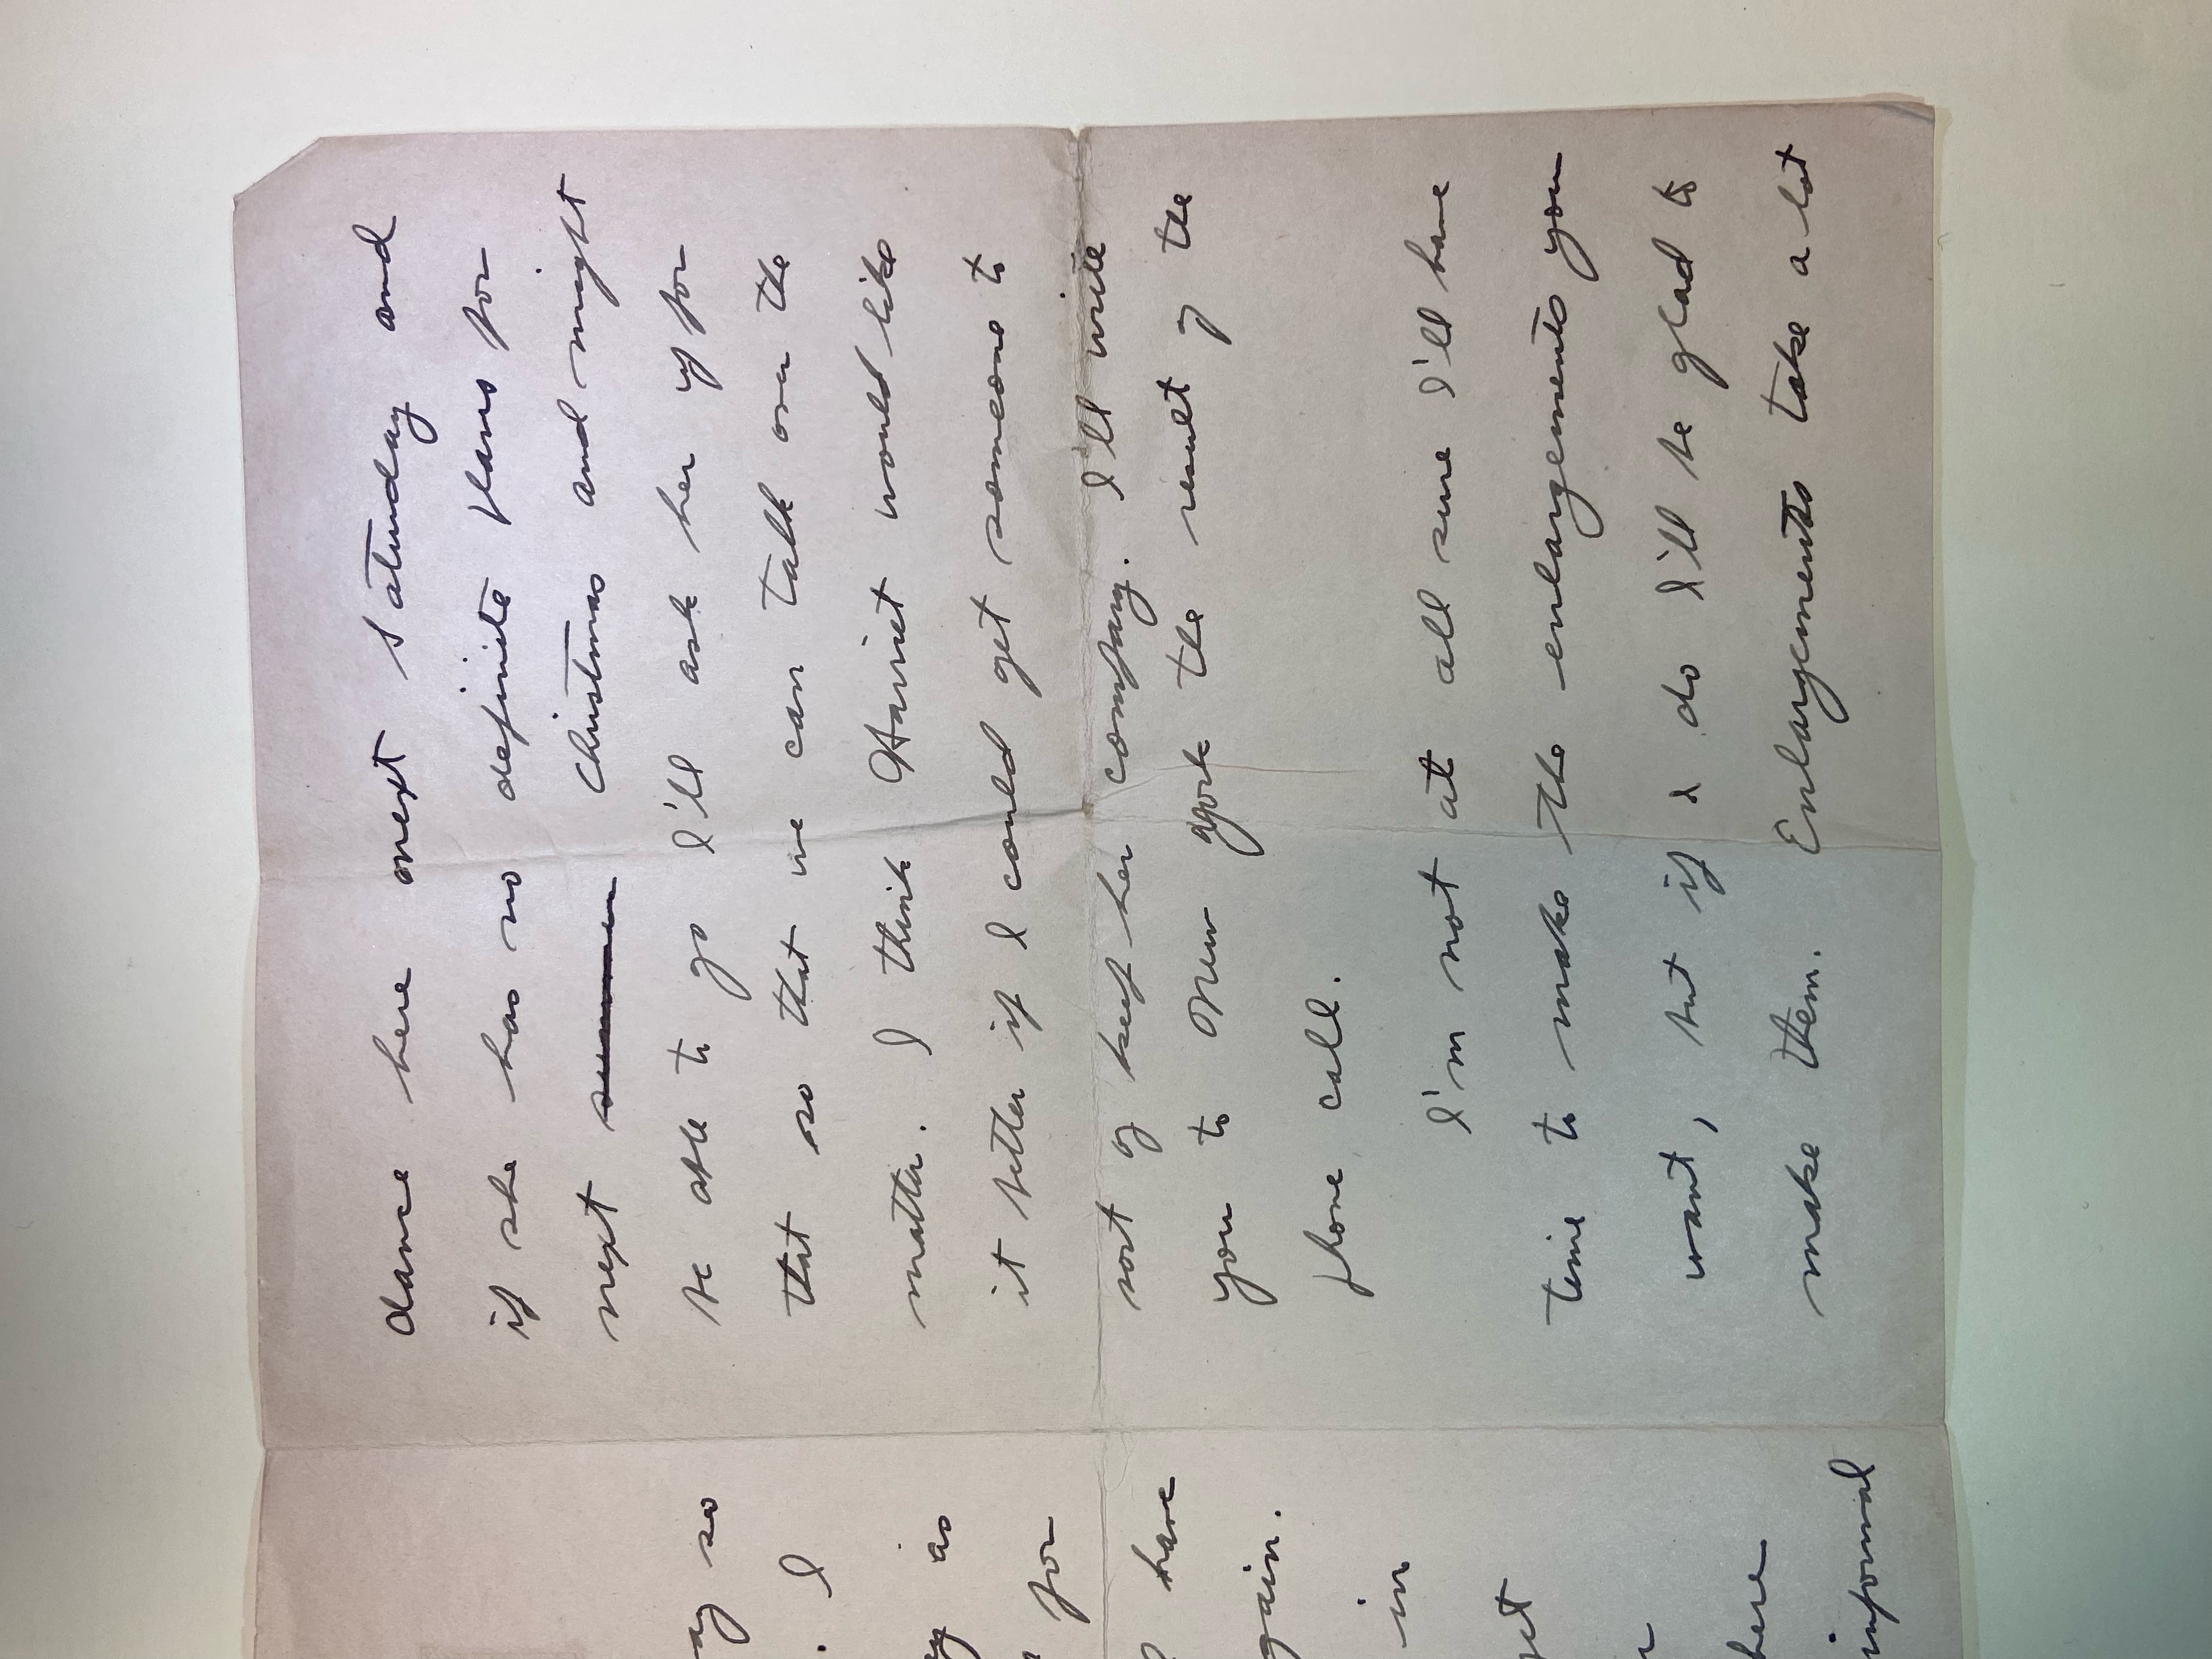 ay so
I
as
for
have
gain.
in
get
here
informal
dance here next Saturday and
if she has no definite plans for
next summer Christmas and might
be able to go I'll ask her up for
that so that we can talk over the
matter. I think Harriet would like
it better if I could get someone to
sort of keep her company. I'll write
you to New York the result of the
phone call.
I'm not at all sure I'll have
time to make the enlargements you
want, but if I do I'll be glad to
make them. Enlargements take a lot